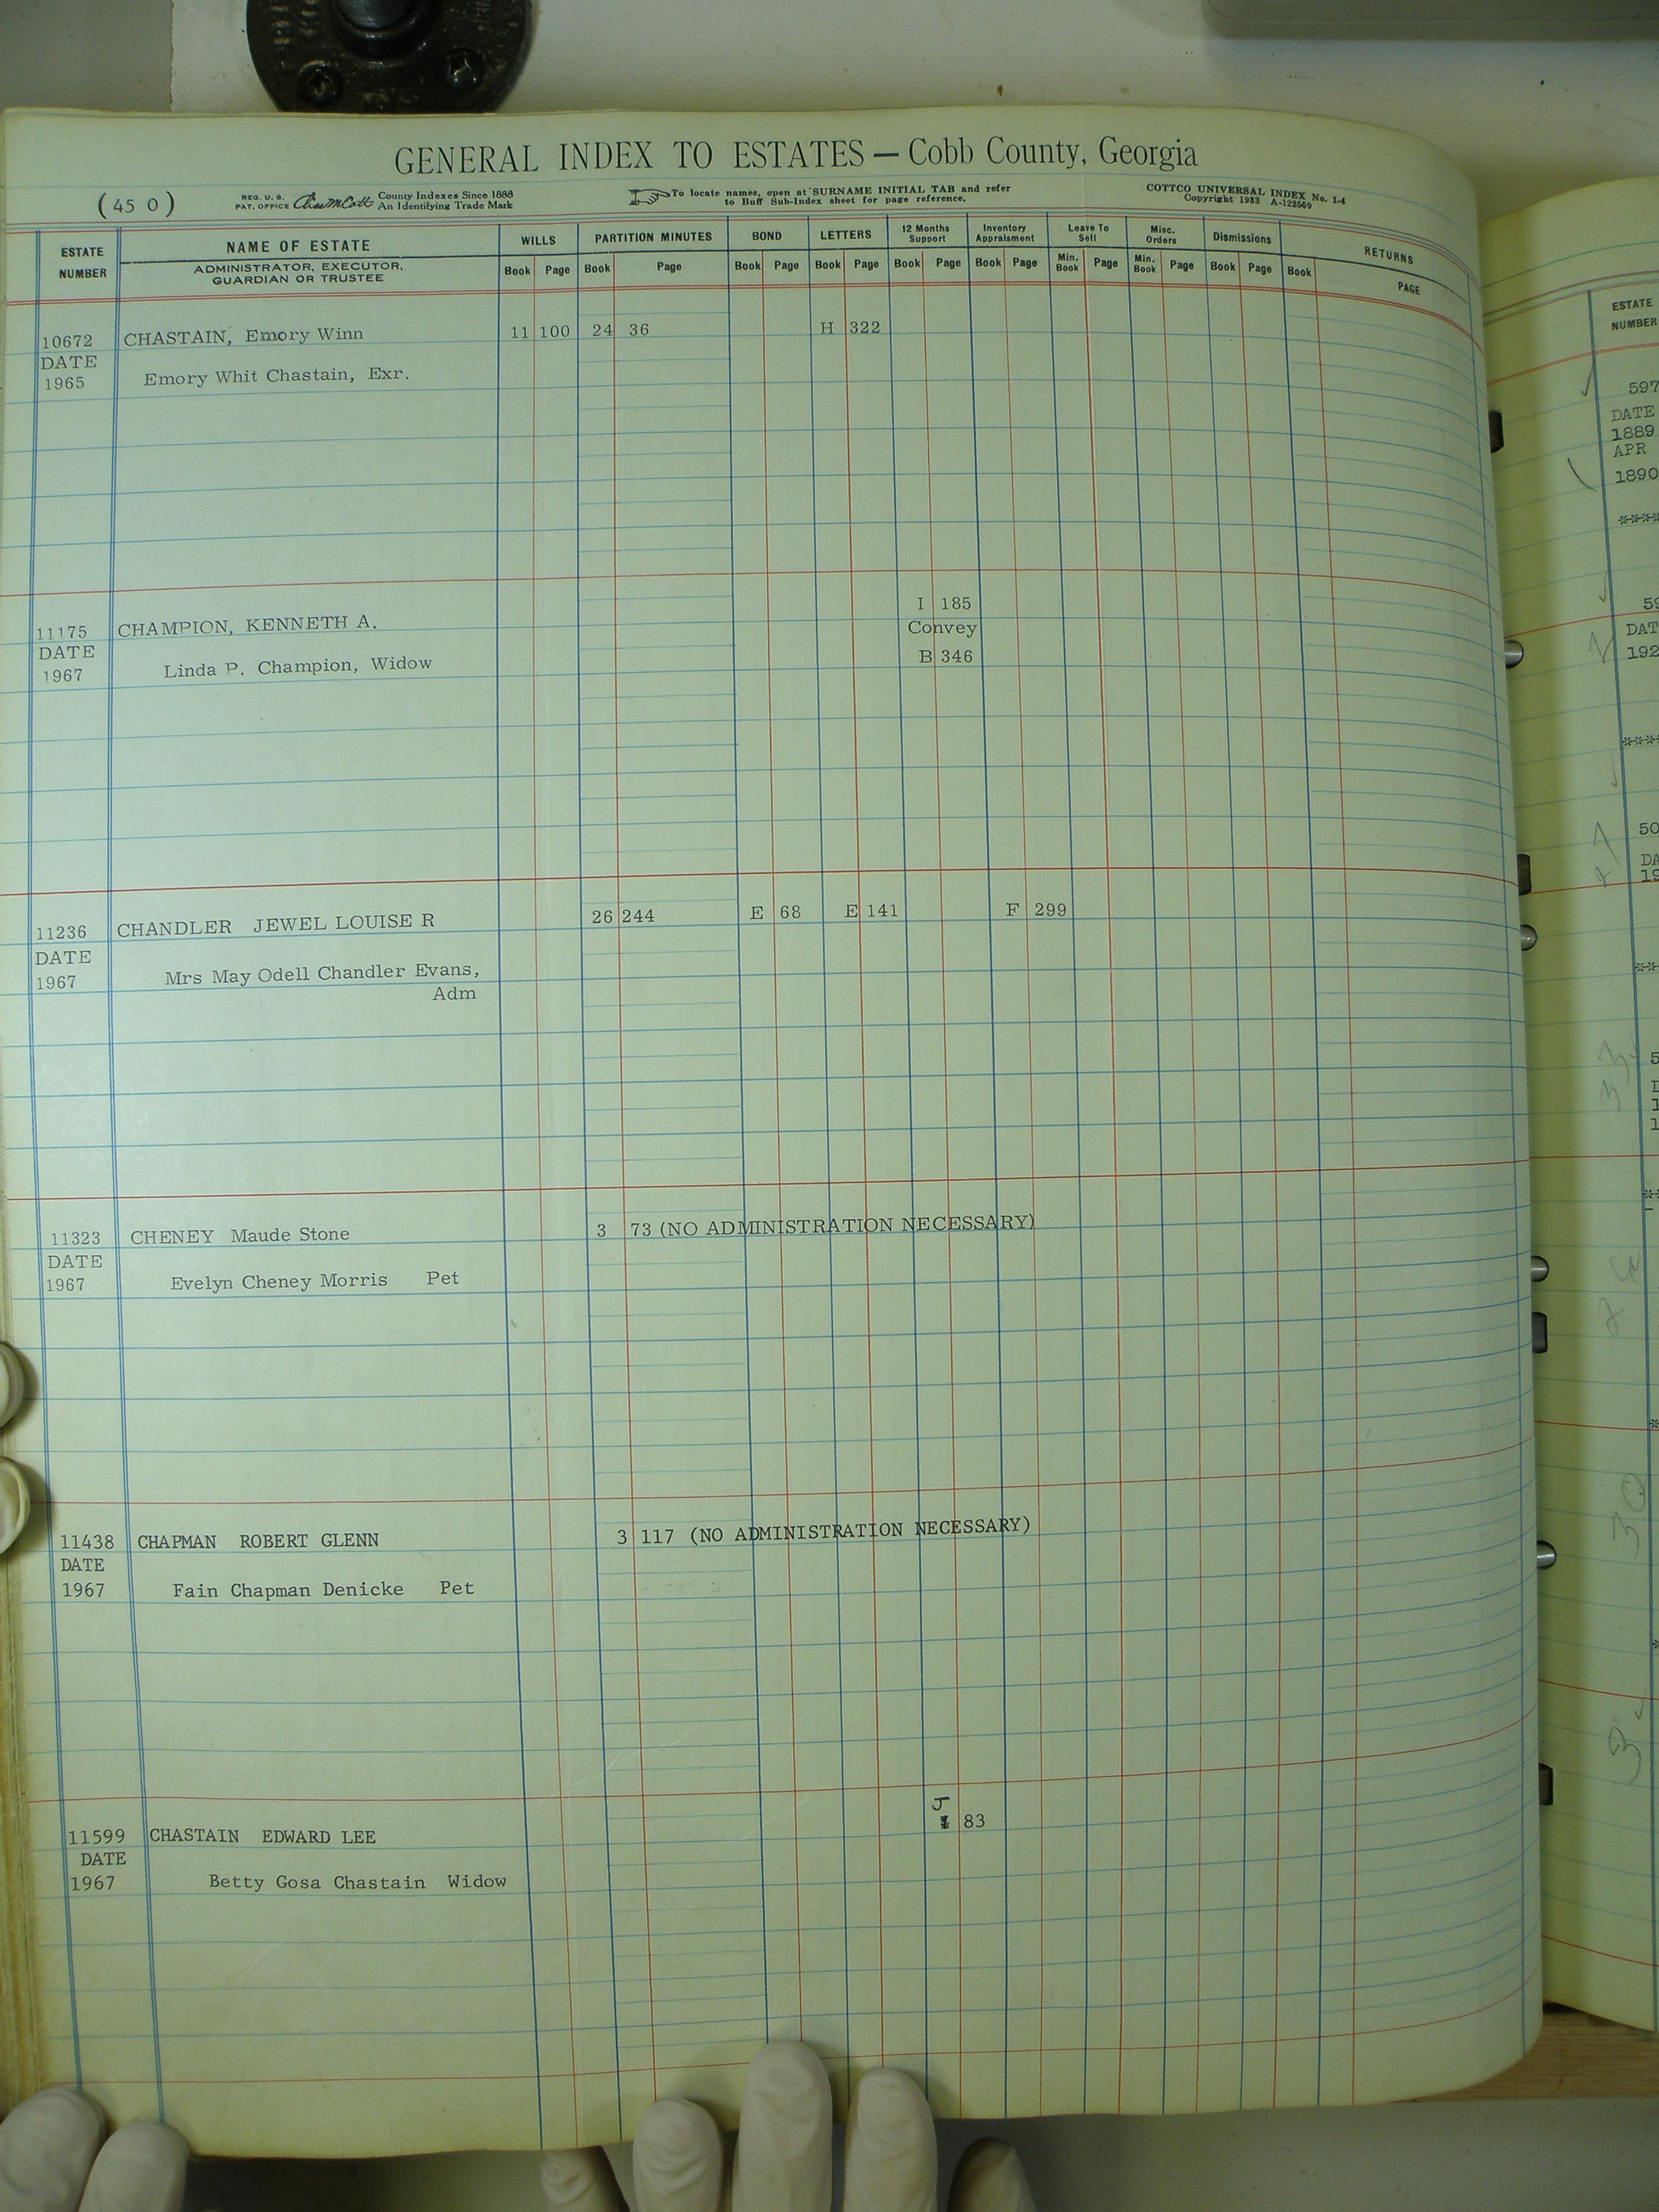 GENERAL INDEX TO ESTATES — Cobb County, Georgia
(45 O)
REG. U. S. PAT. OFFICE County Indexes Since 1888 An Identifying Trade Mark
To locate names, open at SURNAME INITIAL TAB and refer to Buff Sub-Index sheet for page reference.
COTTCO UNIVERSAL INDEX No. 1-4
Copyright 1933 A-122569
ESTATE NUMBER NAME OF ESTATE WILLS PARTITION MINUTES BOND LETTERS 12 Months Support Inventory Appraisment Leave To Sell Misc. Orders Dismissions RETURNS
ADMINISTRATOR, EXECUTOR, GUARDIAN OR TRUSTEE Book Page Book Page Book Page Book Page Book Page Book Page Min. Book Page Min. Book Page Book Page Book PAGE
10672 CHASTAIN, Emory Winn 11 100 24 36 H 322
DATE
1965 Emory Whit Chastain, Exr.
I 185
11175 CHAMPION, KENNETH A. Convey
DATE B 346
1967 Linda P. Champion, Widow
11236 CHANDLER JEWEL LOUISE R 26 244 E 68 E 141 F 299
DATE
1967 Mrs May Odell Chandler Evans,
Adm
11323 CHENEY Maude Stone 3 73 (NO ADMINISTRATION NECESSARY)
DATE
1967 Evelyn Cheney Morris Pet
11438 CHAPMAN ROBERT GLENN 3 117 (NO ADMINISTRATION NECESSARY)
DATE
1967 Fain Chapman Denicke Pet
J
11599 CHASTAIN EDWARD LEE 83
DATE
1967 Betty Gosa Chastain Widow
ESTATE
NUMBER
597
DATE
1889
APR
1890
****
59
DAT
192
****
50
DA
19
**
5